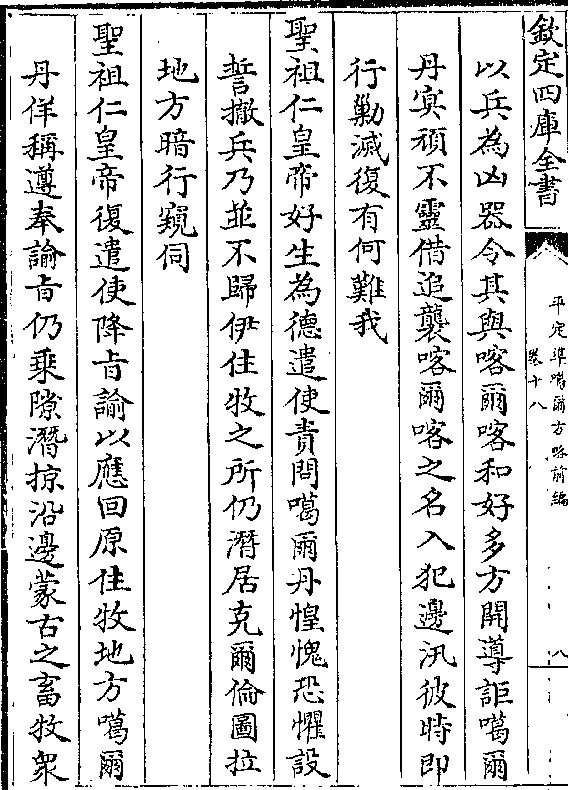 欽定四庫全書
平定準噶爾方略前編
卷十八
八
以兵為凶器令其與喀爾喀和好多方開導詎噶爾
丹冥頑不靈借追襲喀爾喀之名入犯邊汛彼時即
行勦滅復有何難我
聖祖仁皇帝好生為德遣使責問噶爾丹惶愧恐懼設
誓撤兵乃並不歸伊住牧之所仍潛居克爾倫圖拉
地方暗行窺伺
聖祖仁皇帝復遣使降旨諭以應回原住牧地方噶爾
丹佯稱遵奉諭旨仍乗隙潛掠沿邊蒙古之畜牧衆